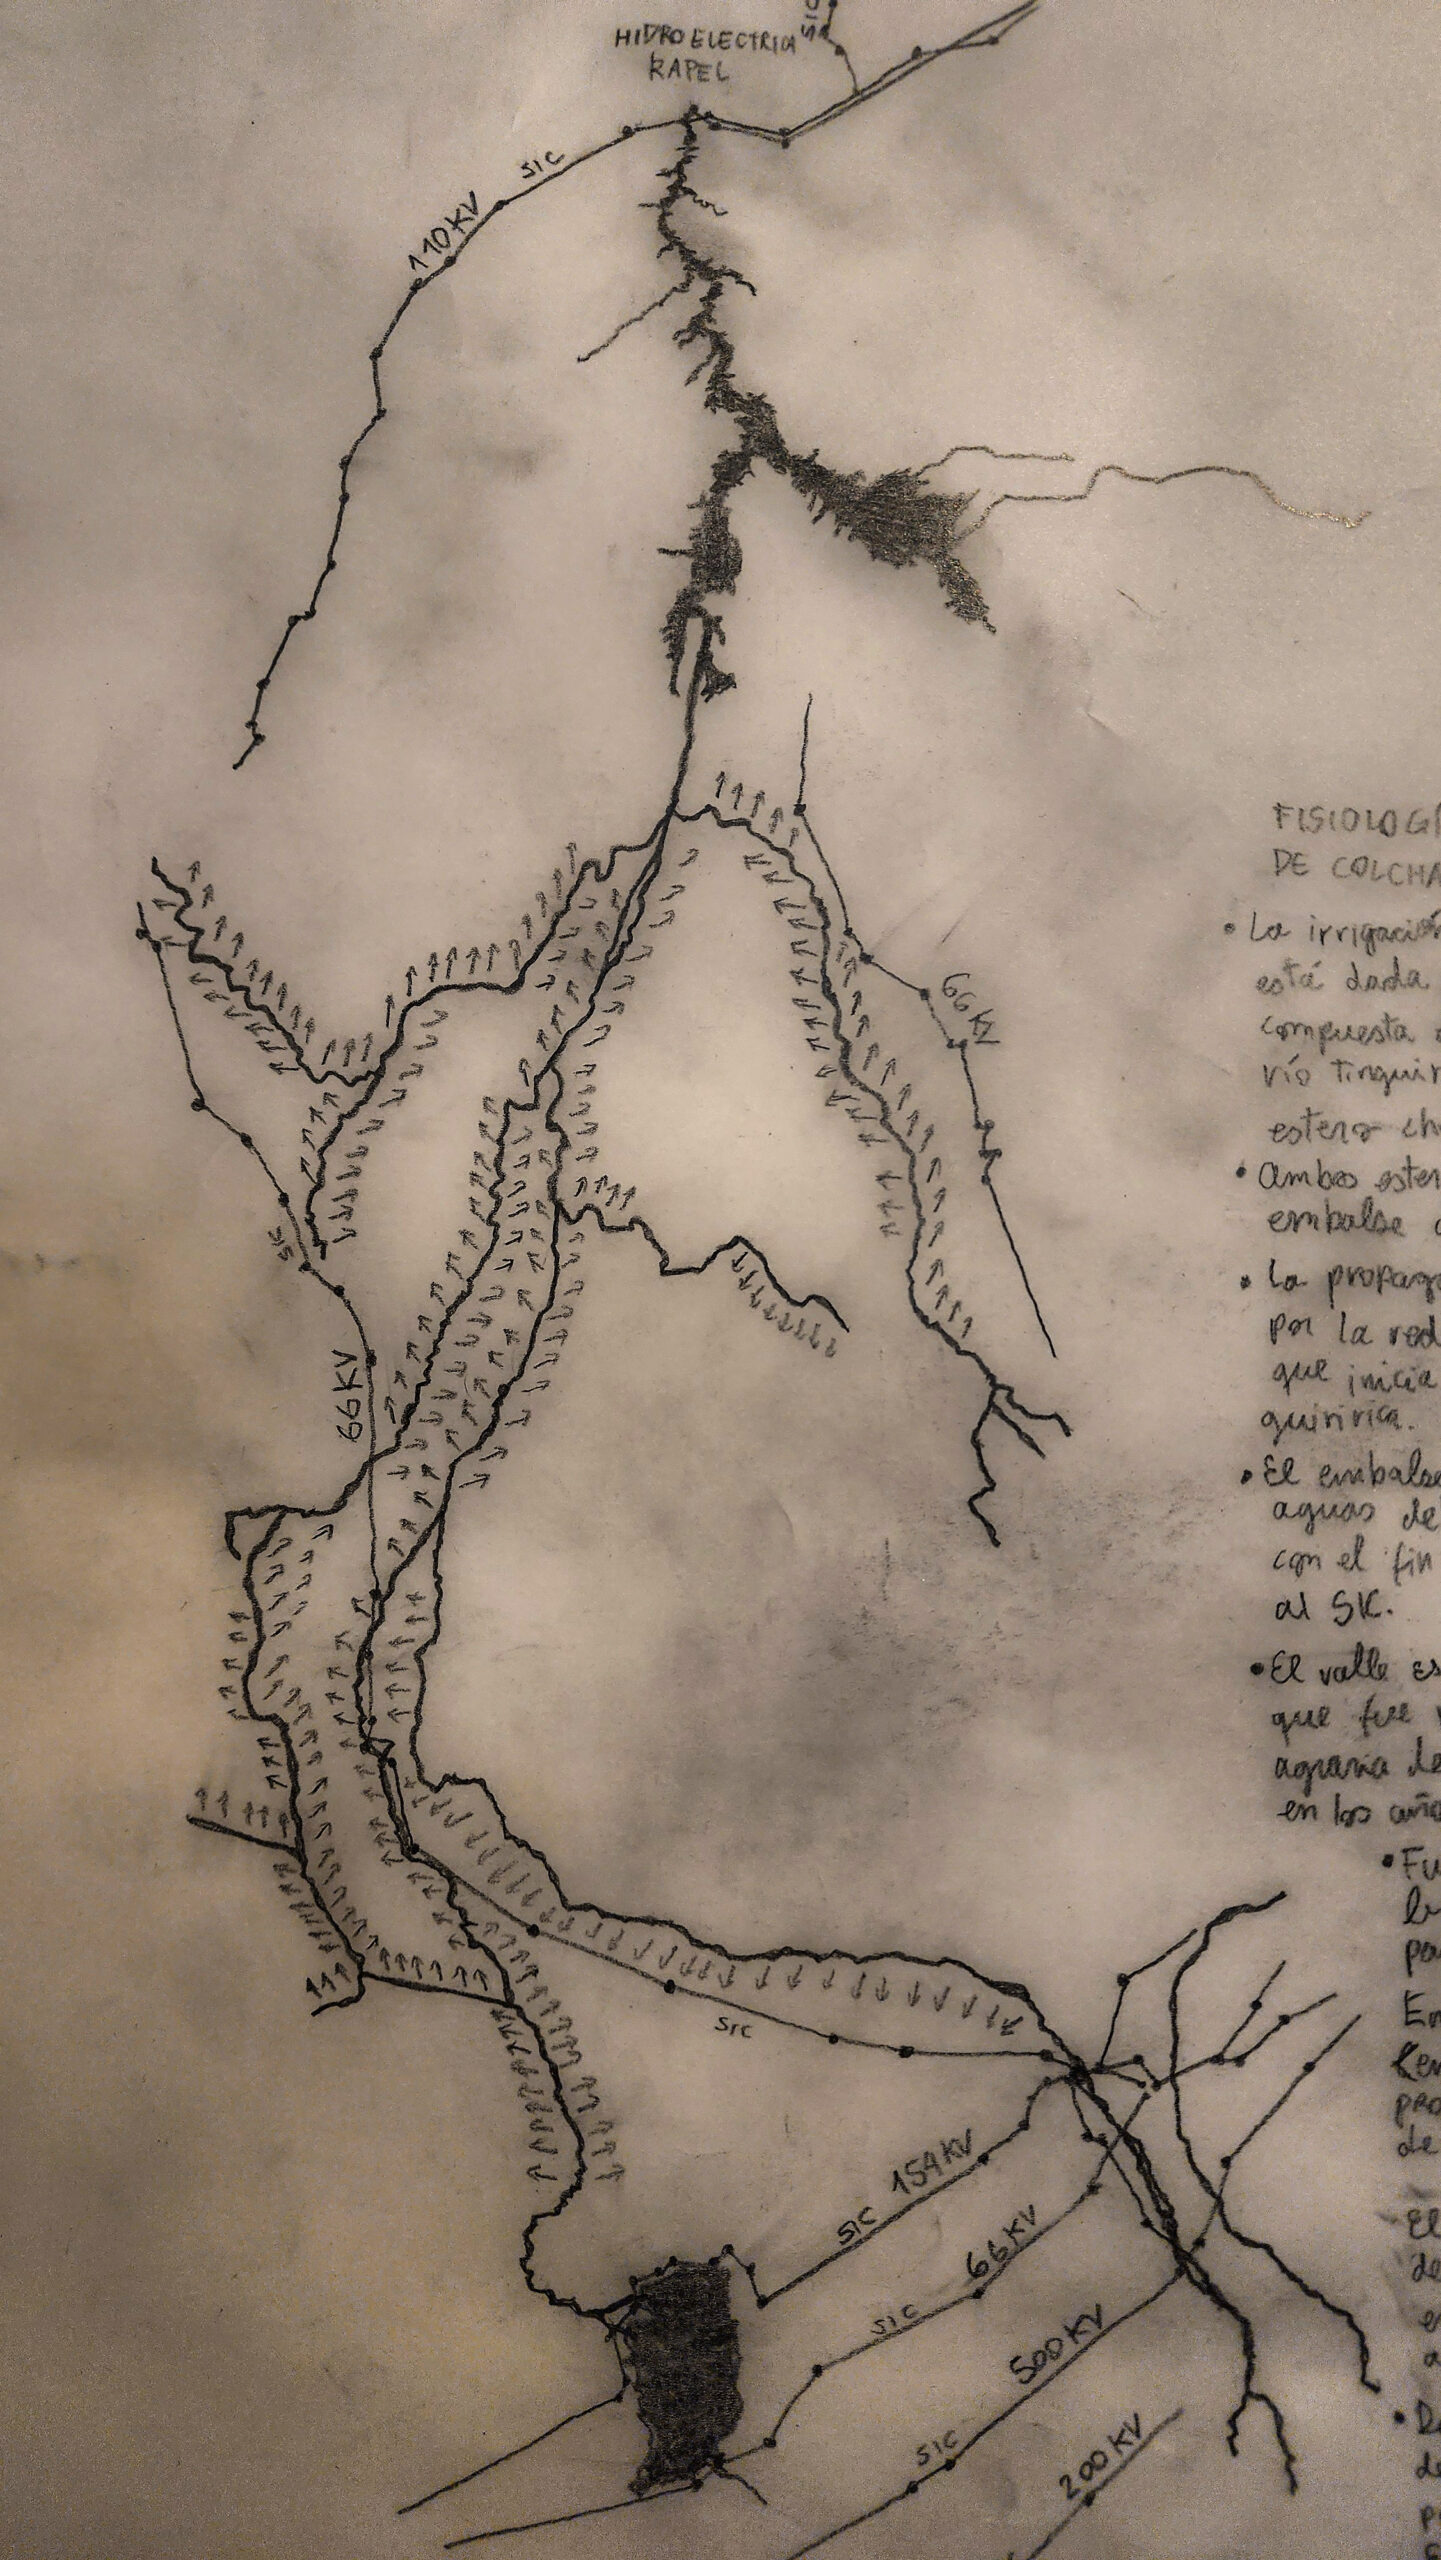 HIDROELECTRICA
RAPEL
SIC
SIC
110KV
66KV
SIC
66KV
SIC
SIC 154KV
SIC 66KV
SIC 500KV
200KV
FISIOLOGÍ
DE COLCHA
• La irrigación
está dada
compuesta
río tinguir
estero ch
• Ambos ester
embalse
• La propaga
por la red
que inicia
quiririca.
• El embalse
aguas de
con el fin
al SIC.
• El valle es
que fue
agraria de
en los año
• Fu
la
pa
En
pro
de
El
de
e
a
de